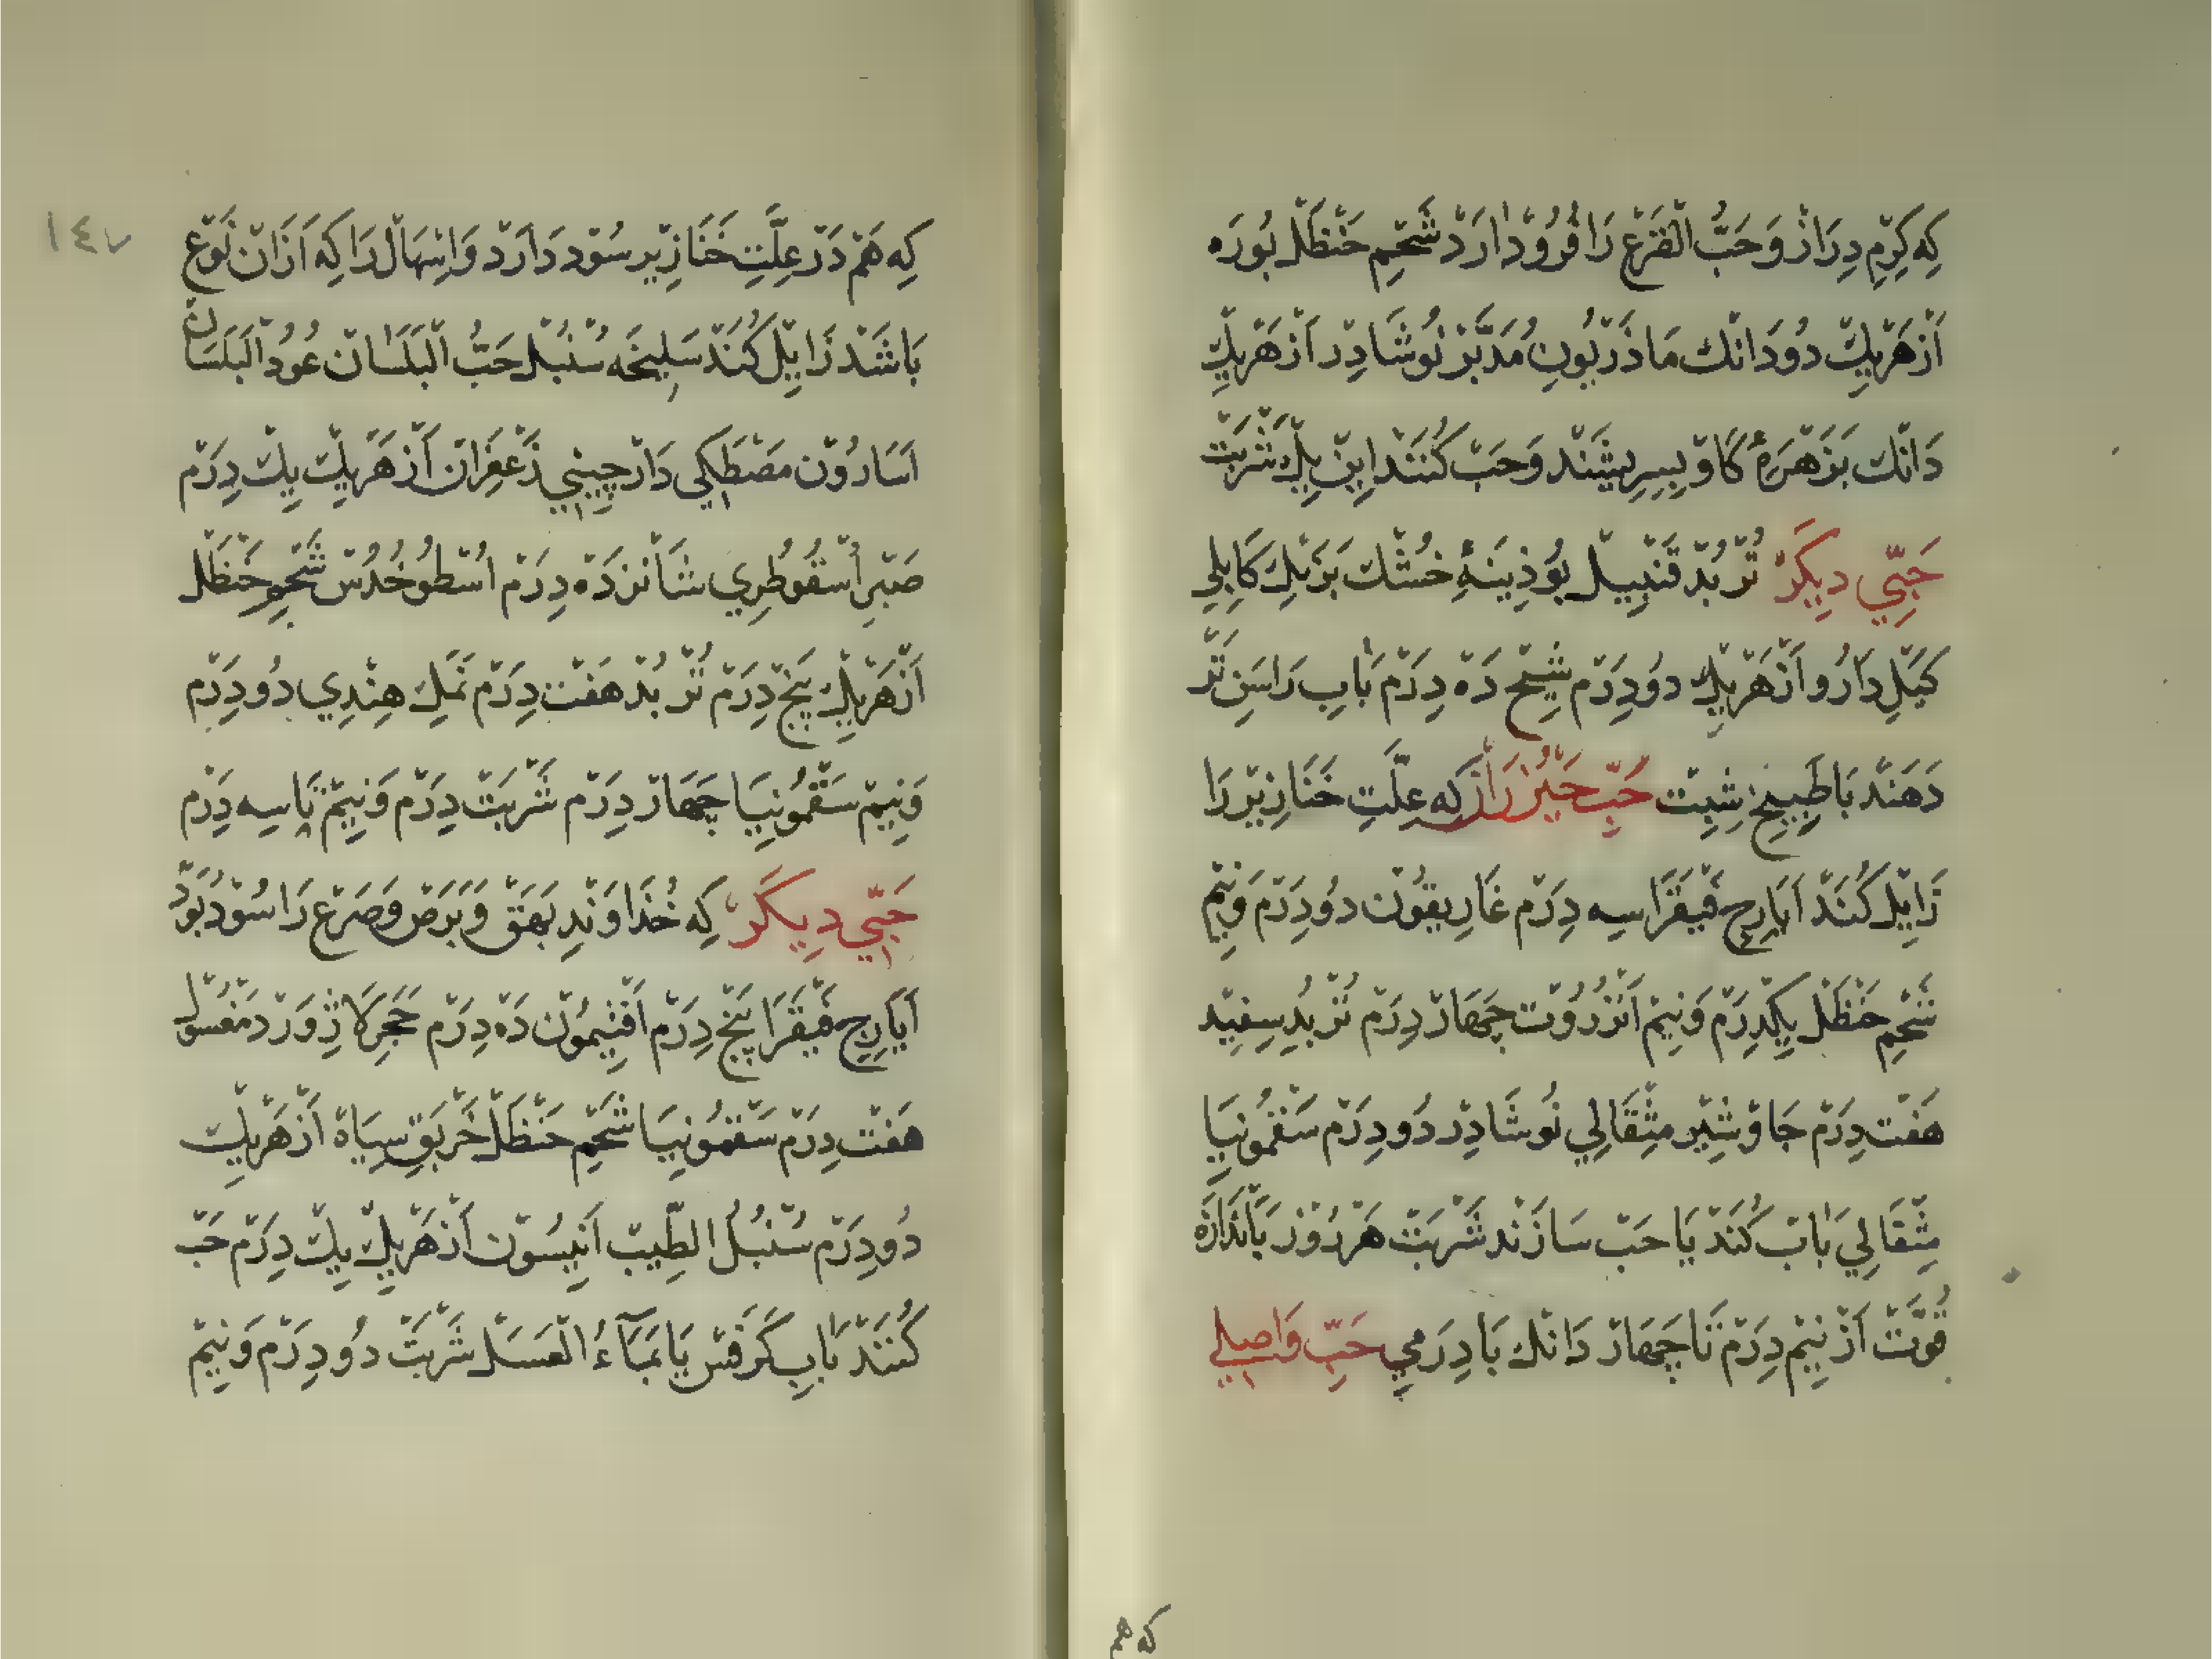 كه كِرْمِ دِرَازْ وَحَبُّ الْقَرَعْ رَا فُرُوْدْارَدْ شَحْمِ حَنْظَلْ بُورَه
اَزْهَرْيِكْ دُودَانْك مَاذَرْيُونِ مُدَبَّرْ نُوشَادِر اَزْهَرْيِكْ
دَانْك بَزَهْرَهٔ كَاوْ بِسِرِيشَنْد وَحَبْ كُنَنْد اِينْ يِكْ شَرْبَتْ
حَبِّي دِيكَرْ تُرْبُدْ قَنْبِيل بُوذِينَهٔ خُشْك بَرَنْكِ كَابِلِي
كَبَلِدَارُو اَزْهَرْيِكْ دُودِرَمْ شِيحْ دَهْ دِرَمْ بَابِ رَاسَنِ تَرْ
دَهَنْد بَاطَبِيخِ شِبِت حَبِّ حَيْزُرَانْ كِه عِلَّتِ خَنَازِيْر رَا
زَايِلْ كُنَدْ اَيَارِجِ فَيْقَرَا سِه دِرَمْ غَارِيقُونْ دُودِرَمْ وَنِيْم
شَحْمِ حَنْظَلْ يِكْدِرَمْ وَنِيْمْ اَنْزَرُوْت چَهَارْ دِرَمْ تُرْبُدِ سِفِيْد
هَفْت دِرَمْ جَاوْشِيْر مِثْقَالِي نُوشَادِرْ دُودِرَمْ سَقْمُونِيَا
مِثْقَالِي بَابْ كُنَنْد يَا حَبْ سَازَنْد شَرْبَتْ هَرْرُوْز بَانْدَازَه
قُوَّتْ اَزْ نِيْم دِرَمْ تَا چَهَارْ دَانْك يَا دِرَمِي حَبِّ وَاصِلِي
كه هم
١٤٧
كِه هَمْ دَرْ عِلَّتِ خَنَازِير سُوْد دَارَدْ وَاِسْهَالْ رَا كِه اَزَانْ نَوْع
بَاشَدْ زَايِلْ كُنَدْ سَلِيخَه سُنْبُل حَبُّ الْبَلَسَانْ عُوْدُ الْبَلَسَان
اَسَارُوْن مَصْطَكِي دَارْچِيْنِي زَعْفَرَانْ اَزْهَرْيِكْ يِكْ دِرَمْ
صَبْرِ اُسْقُوطْرِي شَانْزَدَه دِرَمْ اُسْطُوخُدُسْ شَحْمِ حَنْظَلْ
اَزْهَرْيِكْ پَنْجْ دِرَمْ تُرْبُدْ هَفْت دِرَمْ نَمَكِ هِنْدِي دُودِرَمْ
وَنِيْم سَقْمُونِيَا چَهَارْ دِرَمْ شَرْبَتْ دِرَمْ وَنِيْمْ يَا سِه دِرَمْ
حَبِّي دِيكَرْ كِه خُدَاوَنْدِ بَهَقْ وَبَرَصْ وَصَرَعْ رَا سُوْد بُوَدْ
اَيَارِجِ فَيْقَرَا پَنْجْ دِرَمْ اَفْتِيمُوْن دَه دِرَمْ حَجَرِ لَاژوَرْد مَغْسُوْل
هَفْت دِرَمْ سَقْمُونِيَا شَحْمِ حَنْظَلْ خَرْبَقِ سِيَاهْ اَزْهَرْيِكْ
دُودِرَمْ سُنْبُلُ الطِّيْب اَنِيْسُوْن اَزْهَرْيِكْ يِكْ دِرَمْ حَبْ
كُنَنْد بَابِ كَرَفْسْ يَا بَمَآءُ الْعَسَلْ شَرْبَتْ دُودِرَمْ وَنِيْم